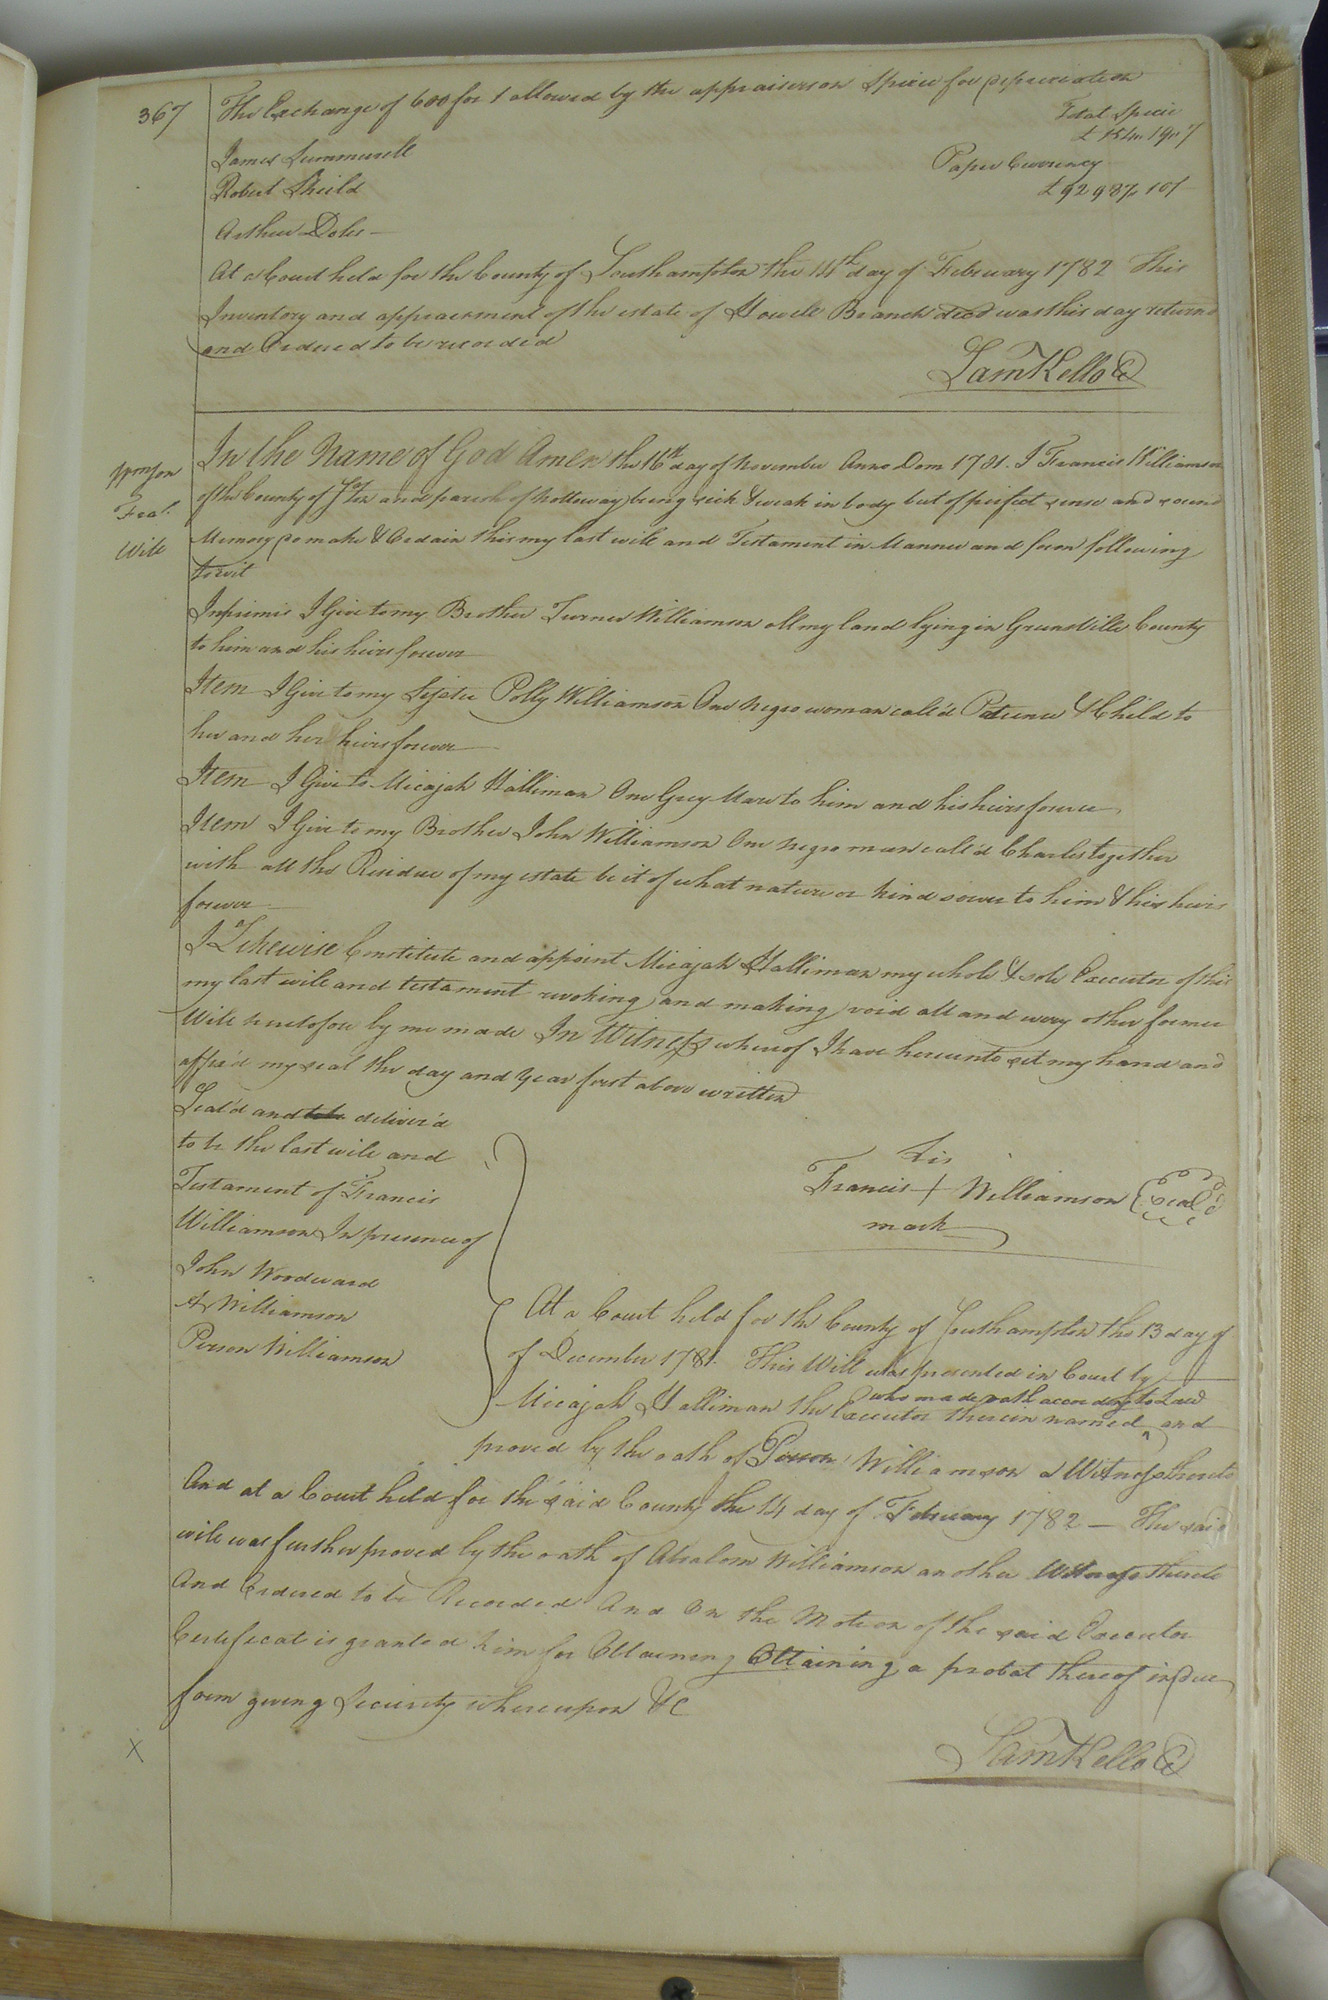 367
The Exchange of 600 for 1 allowed by the appraisers on Specie for depreciation
Total Specie
James Summerell
Paper Currency
Robert Sheild
Arthur Doles
At a Court held for the County of Southampton the 14th day of February 1782 This
Inventory and appraisement of the estate of Howell Branch decd was this day returnd
and Ordered to be recorded
Sam Kello C
Wmson
Fras.
Will
In the Name of God Amen the 16th day of November Anno Dom 1781. I Francis Williamson
of the County of and parish of Nottoway being sick & weak in body but of perfect sense and sound
Memory do make & Ordain this my last will and Testament in Manner and form following
towit
Inprimis I Give to my Brother Turner Williamson all my land lying in Grunsville County
to him and his heirs forever
Item I Give to my Sister Polly Williamson One negro woman call'd Patience & Child to
her and her heirs forever
Item I Give to Micajah Halliman One Grey Mare to him and his heirs forever
Item I Give to my Brother John Williamson One negro man call'd Charles together
with all the Residue of my estate be it of what nature or kind soever to him & his heirs
forever
I Likewise Constitute and appoint Micajah Halliman my whole & sole Executor of this
my last will and testament revoking and making void all and every other former
Will heretofore by me made In Witness whereof I have hereunto set my hand and
affix'd my seal the day and year first above written
Seal'd and deliver'd
to be the last will and
Testament of Francis
Williamson In presence of
John Woodward
A Williamson
Person Williamson
his
Francis + Williamson Seal'd
mark
At a Court held for the County of Southampton the 13 day of
of December 1781. This Will was presented in Court by
who made oath according to Law
Micajah Halliman the Executor therein named ^ and
proved by the oath of Person Williamson a Witness thereto
And at a Court held for the said County the 14 day of February 1782 — The said
will was further proved by the oath of Absalom Williamson another Witness thereto
And Ordered to be Recorded And On the Motion of the said Executor
Certificat is granted him for Obtaining Obtaining a probat thereof in due
form giving Security whereupon &C
Sam Kello C
X